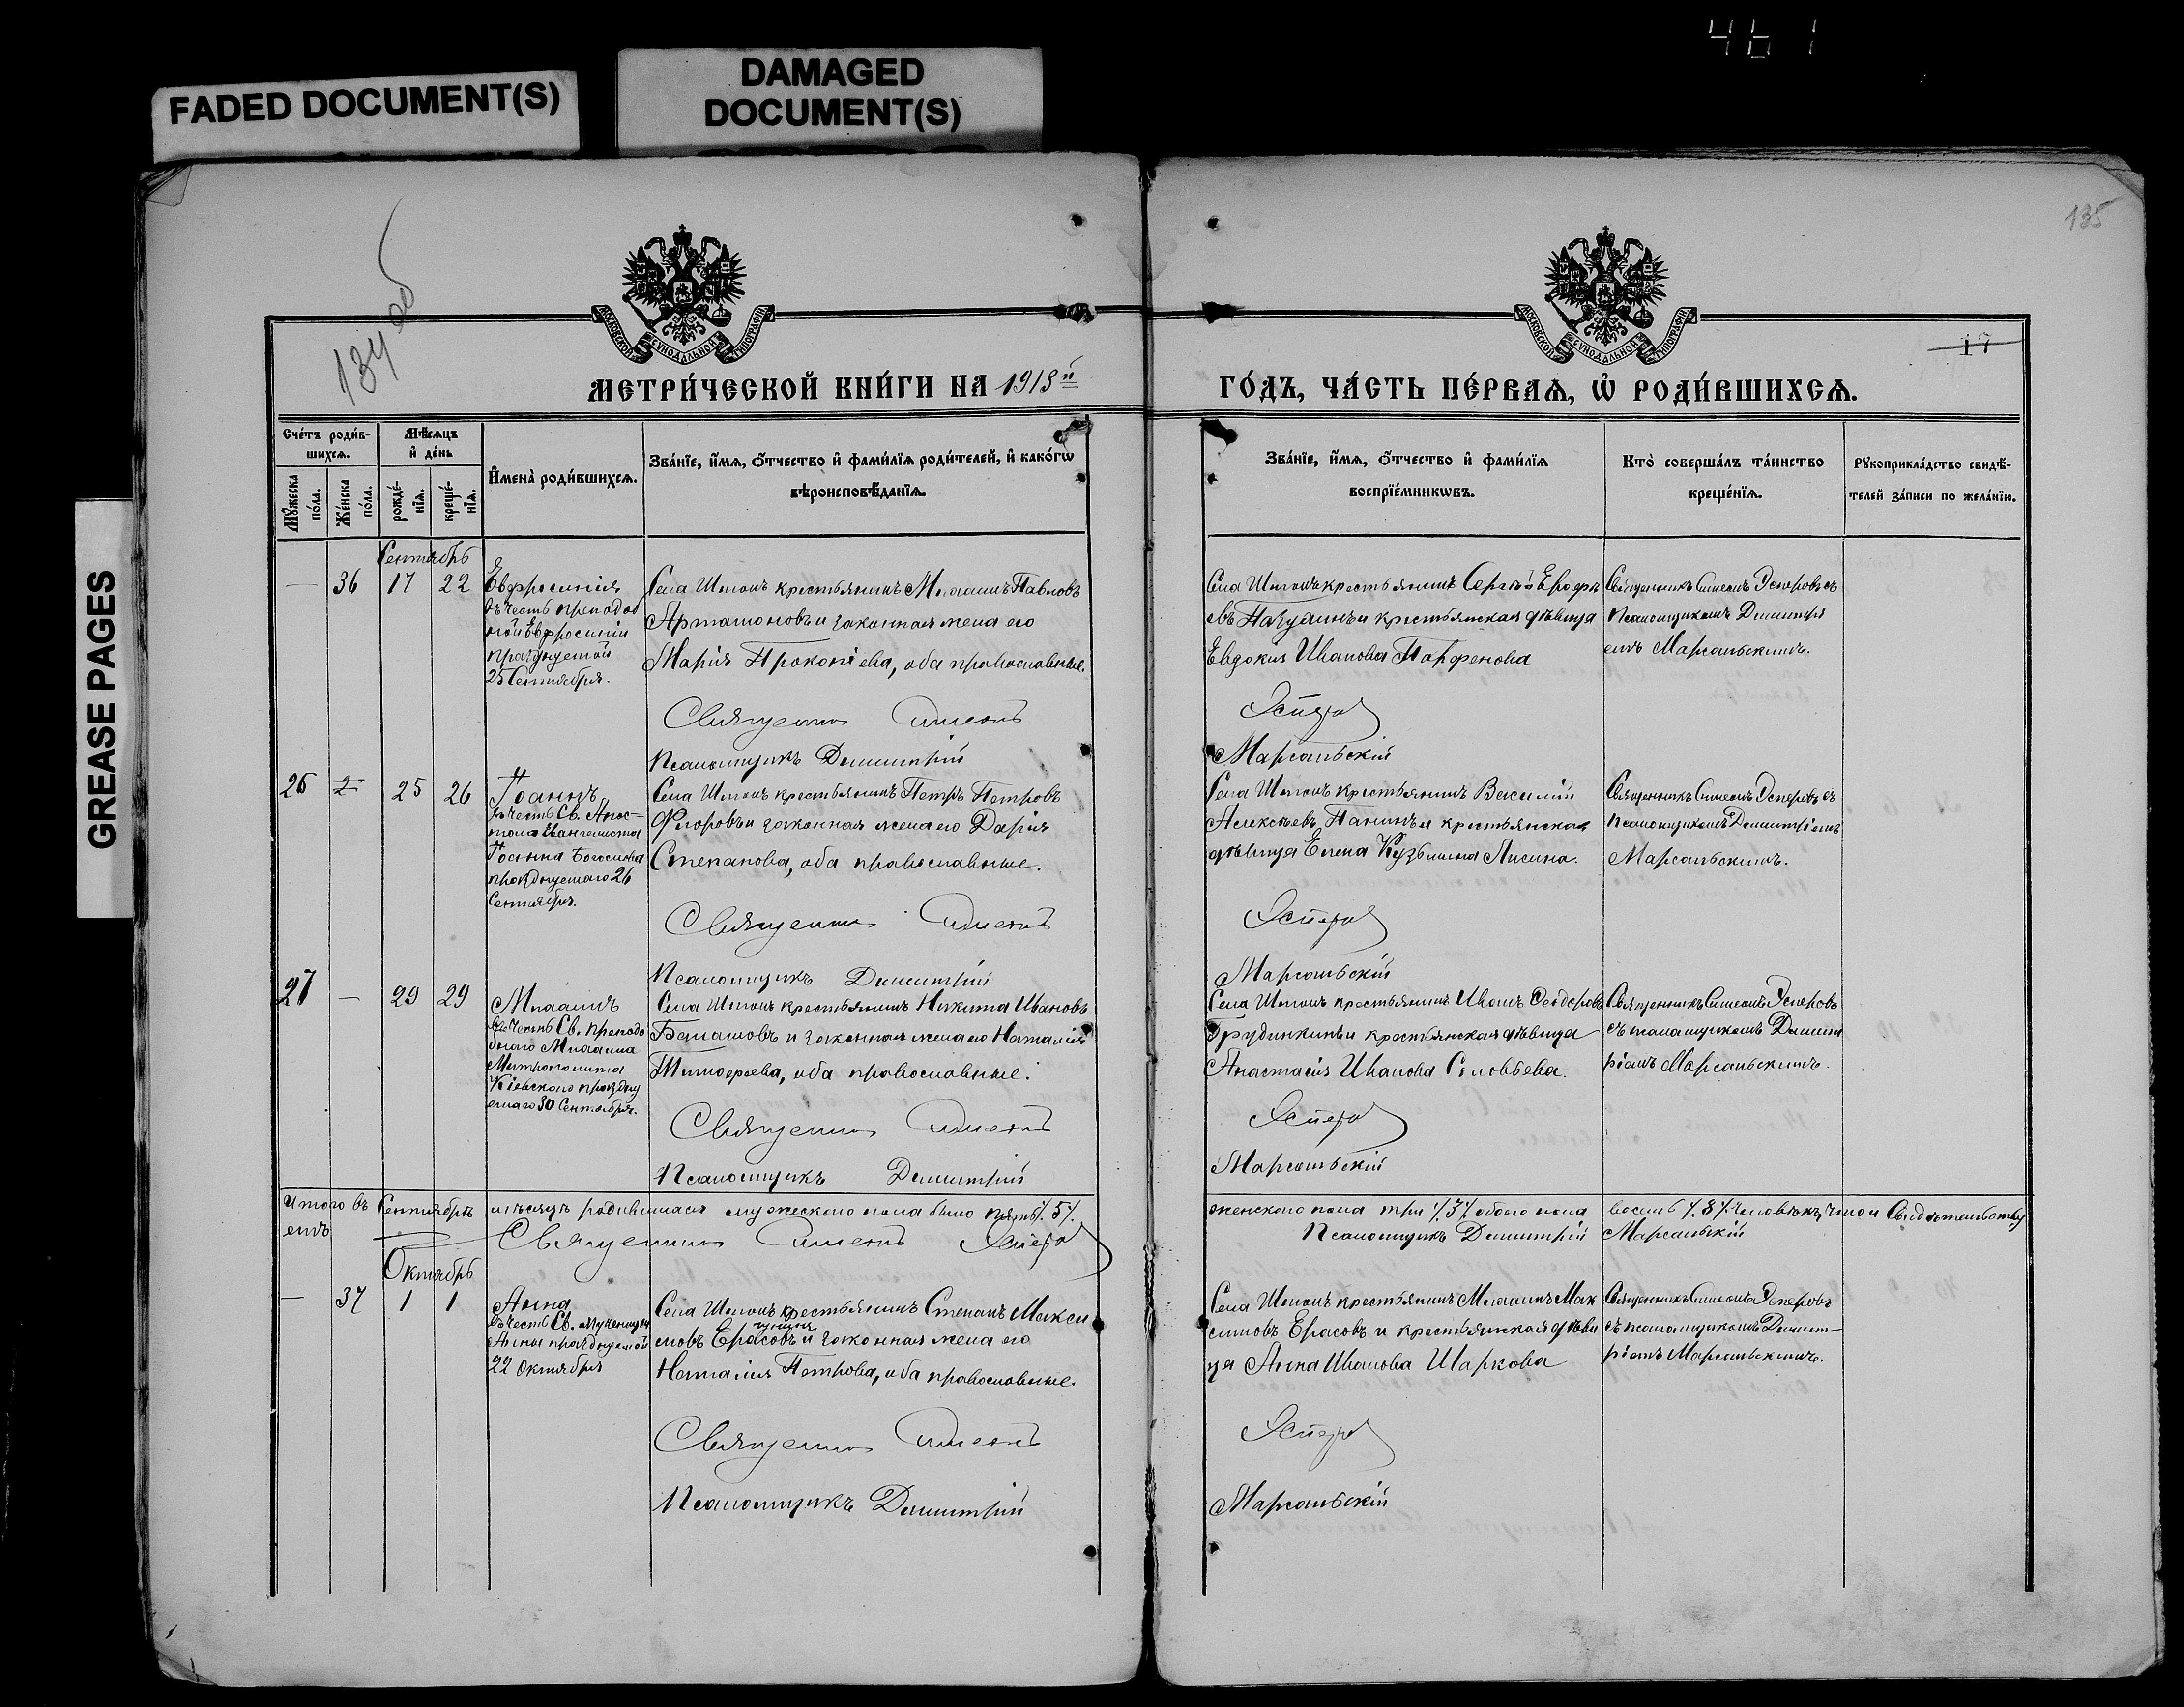 461
FADED DOCUMENT(S)
DAMAGED
DOCUMENT(S)
GREASE PAGES
134 об
135
17
МОСКОВСКОЙ СѴНОДАЛЬНОЙ ТИПОГРАФІИ
МОСКОВСКОЙ СѴНОДАЛЬНОЙ ТИПОГРАФІИ
МЕТРИ́ЧЕСКОЙ КНИ́ГИ НА 1913й
ГО́ДЪ, ЧА́СТЬ ПЕ́РВАѦ, Ѡ҆ РОДИ́ВШИХСѦ.
Сче́тъ роди́в-
шихсѧ.
Мѣ́сѧцъ
и҆ де́нь
Мꙋ́жеска
по́ла.
Же́нска
по́ла.
рожде́-
нїѧ.
креще́-
нїѧ.
И҆мена̀ роди́вшихсѧ.
Зва́нїе, и҆́мѧ, ѻ҆́тчество и҆ фами́лїѧ роди́телей, и҆ како́гѡ
вѣроисповѣ́данїѧ.
Зва́нїе, и҆́мѧ, ѻ҆́тчество и҆ фами́лїѧ
воспрїе́мникѡвъ.
Кто̀ соверша́лъ та́инство
креще́нїѧ.
Рꙋкоприкла́дство свидѣ́-
телей за́писи по жела́нїю.
Сентябрь
— 36 17 22
Евфросинія
въ честь преподоб
ной Евфросиніи
празднуемой
25 Сентября.
Села крестьянинъ Михаилъ Павловъ
Артамоновъ и законная жена его
Марія Прокопіева, оба православные.
Священникъ Симеонъ
Псаломщикъ Димитрій
Села крестьянинъ Сергѣй Ерофе
евъ и крестьянская дѣвица
Евдокія Иванова Парфенова
Эсперовъ
Марсальскій
Священникъ Симеонъ Эсперовъ съ
псаломщикомъ Димитрі
емъ Марсальскимъ.
26 25 26
Іоаннъ
въ честь Св. Апос-
тола Евангелиста
Іоанна Богослова
празднуемаго 26
Сентября.
Села крестьянинъ Петръ Петровъ
Флоровъ и законная жена его Дарія
Степанова, оба православные.
Священникъ Симеонъ
Псаломщикъ Димитрій
Села крестьянинъ Василій
Алексѣевъ Панинъ и крестьянская
дѣвица Елена Кузьмина Лисина.
Эсперовъ
Марсальскій
Священникъ Симеонъ Эсперовъ съ
псаломщикомъ Димитріемъ
Марсальскимъ.
27 — 29 29
Михаилъ
въ честь Св. преподо
бнаго Михаила
Митрополита
Кіевскаго праздну
емаго 30 Сентября.
Села крестьянинъ Никита Ивановъ
Балашовъ и законная жена его Наталія
Тимофеева, оба православные.
Священникъ Симеонъ
Псаломщикъ Димитрій
Села крестьянинъ Иванъ Феодоровъ
Грудинкинъ и крестьянская дѣвица
Анастасія Иванова Соловьева.
Эсперовъ
Марсальскій
Священникъ Симеонъ Эсперовъ
съ псаломщикомъ Димит
ріемъ Марсальскимъ.
Итого въ Сентябрѣ мѣсяцѣ родившихся мужескаго пола было пять ٪5٪. женскаго пола три ٪3٪ обоего пола восемь ٪8٪ человѣкъ, въ чемъ и свидѣтельству
емъ Священникъ Симеонъ Эсперовъ Псаломщикъ Димитрій Марсальскій
Октябрь
— 37 1 1
Анна
въ честь Св. мученицы
Анны празднуемой
22 Октября
Села крестьянинъ Степанъ Макси
мовъ Ерасовъ и законная жена его
Наталія Петрова, оба православные.
Священникъ Симеонъ
Псаломщикъ Димитрій
Села крестьянинъ Михаилъ Мак
симовъ Ерасовъ и крестьянская дѣви
ца Анна Иванова Шаркова
Эсперовъ
Марсальскій
Священникъ Симеонъ Эсперовъ
съ псаломщикомъ Димит-
ріемъ Марсальскимъ.